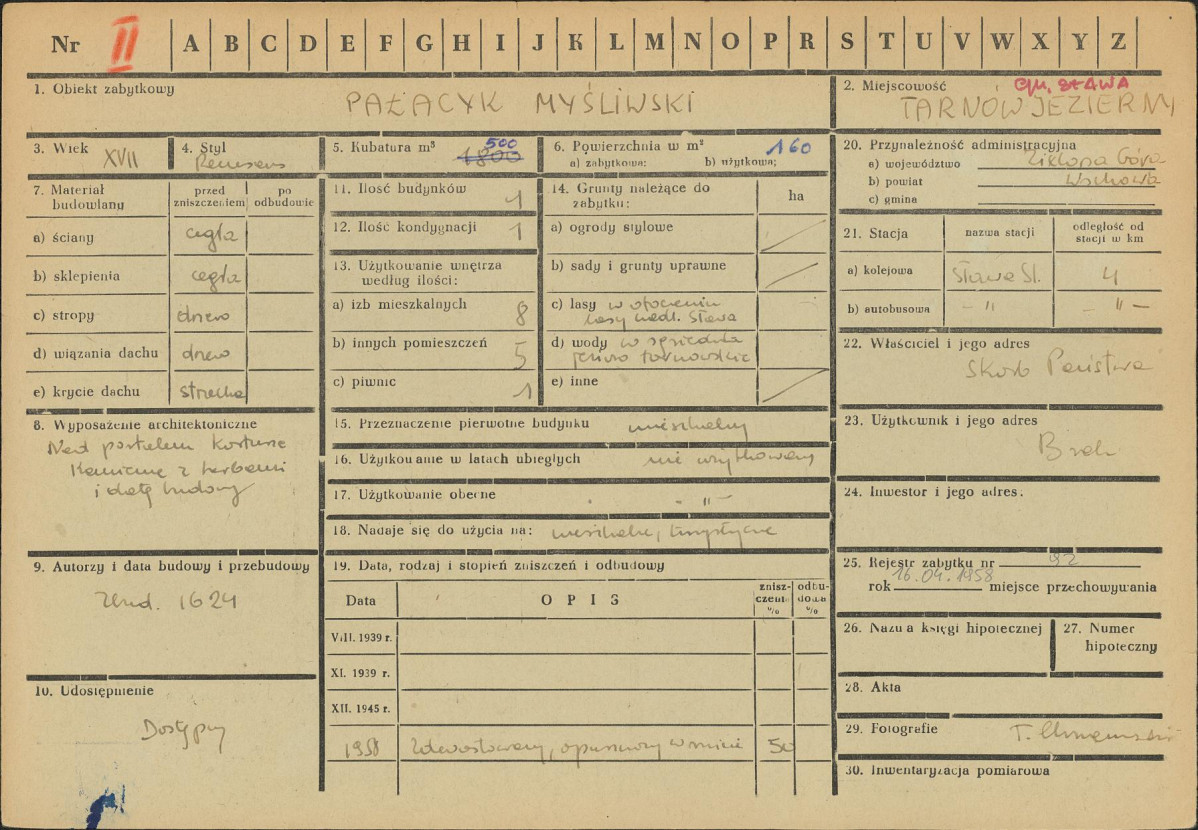 Nr II A B C D E F G H I J K L M N O P R S T U V W X Y Z
1. Obiekt zabytkowy
PAŁACYK MYŚLIWSKI
2. Miejscowość gm. SŁAWA
TARNÓW JEZIERNY
3. Wiek XVII
4. Styl
Renesans
5. Kubatura m³ 500
1800
6. Powierzchnia w m² 160
a) zabytkowa: b) użytkowa:
7. Materiał budowlany
przed zniszczeniem
po odbudowie
a) ściany cegła
b) sklepienia cegła
c) stropy drzewo
d) wiązania dachu drzewo
e) krycie dachu strzecha
8. Wyposażenie architektoniczne
Nad portalem kartusze
kamienne z herbami
i datą budowy
9. Autorzy i data budowy i przebudowy
Zbud. 1624
10. Udostępnienie
Dostępny
11. Ilość budynków 1
12. Ilość kondygnacji 1
13. Użytkowanie wnętrza
według ilości:
a) izb mieszkalnych 8
b) innych pomieszczeń 5
c) piwnic 1
14. Grunty należące do
zabytku: ha
a) ogrody stylowe
b) sady i grunty uprawne
c) lasy w otoczeniu
lasy nadl. Sława
d) wody w sąsiedztwie
jezioro tarnowskie
e) inne
15. Przeznaczenie pierwotne budynku mieszkalny
16. Użytkowanie w latach ubiegłych nie użytkowany
17. Użytkowanie obecne - " -
18. Nadaje się do użycia na: mieszkalne, turystyczne
19. Data, rodzaj i stopień zniszczeń i odbudowy
Data OPIS zniszczenia % odbudowa %
VIII. 1939 r.
XI. 1939 r.
XII. 1945 r.
1958 Zdewastowany, opuszczony w ruinie 50
20. Przynależność administracyjna
a) województwo Zielona Góra
b) powiat Wschowa
c) gmina
21. Stacja nazwa stacji odległość od stacji w km
a) kolejowa Sława Śl. 4
b) autobusowa - " - - " -
22. Właściciel i jego adres
Skarb Państwa
23. Użytkownik i jego adres
Brak
24. Inwestor i jego adres.
25. Rejestr zabytku nr 92
rok 16.04.1958 miejsce przechowywania
26. Nazwa księgi hipotecznej
27. Numer
hipoteczny
28. Akta
29. Fotografie T.
30. Inwentaryzacja pomiarowa